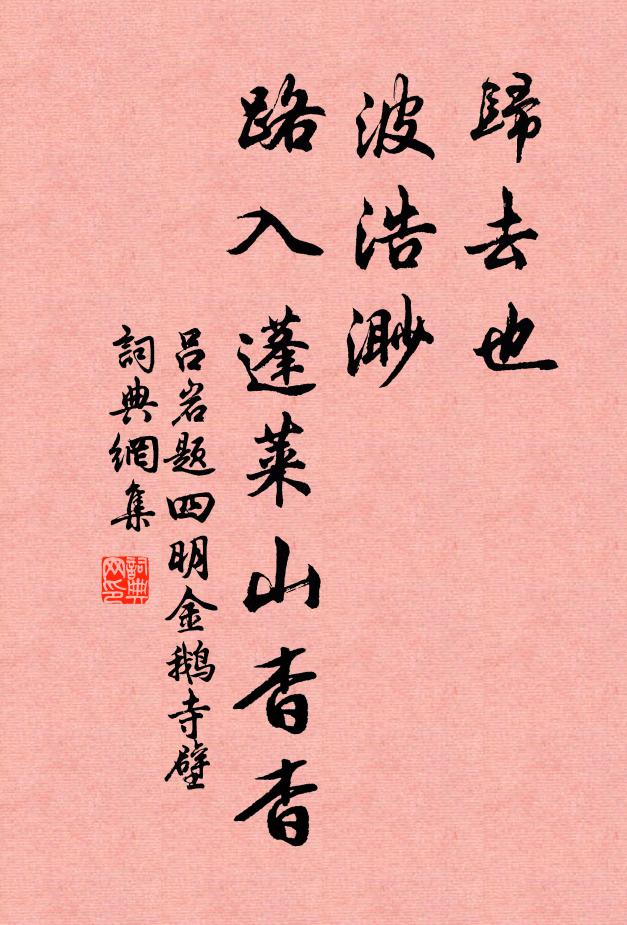 歸去也
波浩渺
路入蓬萊山杳杳
吕岩题四明金鵝寺壁
詞典網集
詞典
网印